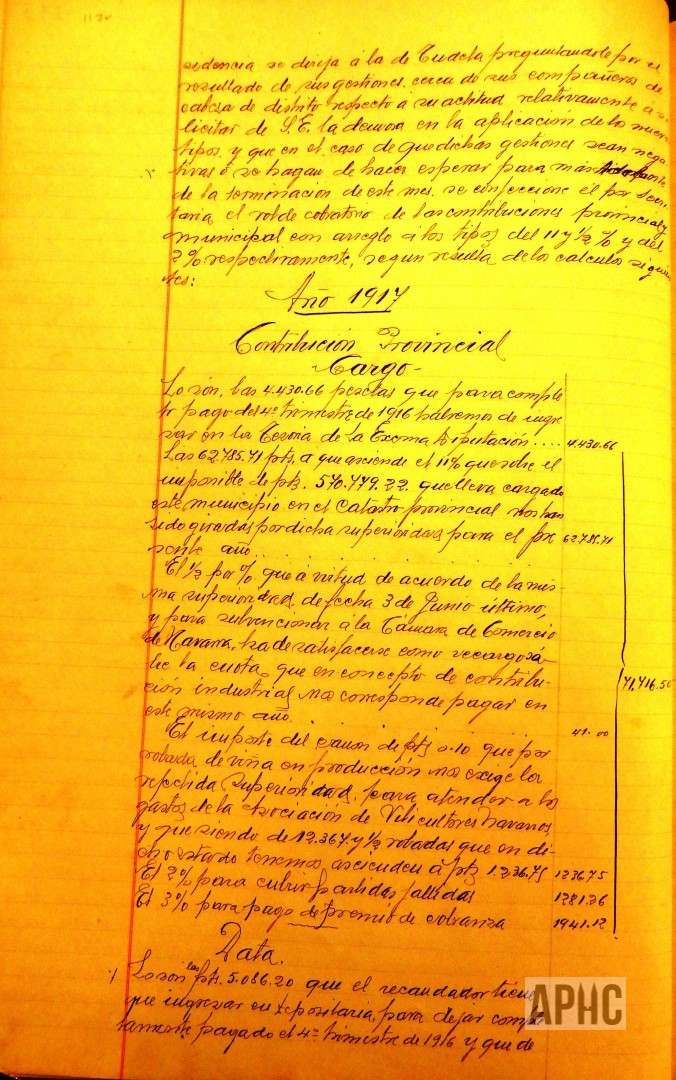 sidencia se dirija á la de Tudela preguntandole por el
resultado de sus gestiones cerca de sus compañeros de
cabeza de distrito respecto á su actitud relativamente á so
licitar de S.E. la demora en la aplicacion de los nuevos
tipos, y que en el caso de que dichas gestiones sean nega
tivas ó se hagan de hacer esperar para más
de la terminacion de este mes, se confeccione el por Secre
taría el rolde cobratorio de las contribuciones provincial y
municipal con arreglo á los tipos del 11 y ½ % y del
2 % respectivamente, segun resulta de los calculos siguien
tes:
Año 1917
Contribución Provincial
Cargo
Lo són, las 4.430.66 pesetas que para comple
to pago del 4º trimestre de 1916 habremos de ingre
sar en la Tesoria de La Excma Diputación .... 4.430.66
Las 62.785.71 pts, a que asciende el 11% que sobre el
imponible de pts. 570.779.22 que lleva cargado
este municipio en el Catastro provincial nos han
sido giradas por dicha superioridad para el pre 62.785.71
sente año..
El ½ por % que á virtud de acuerdo de la mis-
ma superioridad, de fecha 3 de Junio último,
y para subvencionar á la Cámara de Comercio
de Navarra, ha de satisfacerse como recargo só-
bre la cuota, que en concepto de contribu- 71,716.50
ción industrial nos corresponde pagar en
este mismo año. 41.00
El importe del canon de pts 0.10 que por
robada de viña en producción nos exige la
repetida superioridad, para atender a los
gastos de la Asociación de Viticultores Navarros,
y que siendo de 12.367 y ½ robadas que en di-
cho estado tenemos, ascienden á pts 1.236.75 1236.75
El 2% para cubrir partidas fallidas 1281.26
El 3% para pago de premio de cobranza 1941.12
Data.
Lo són las pts. 5.086.20 que el recaudador tiene
que ingresar en Depositaria, para dejar comple
tamente pagado el 4º trimestre de 1916 y que de
APHC